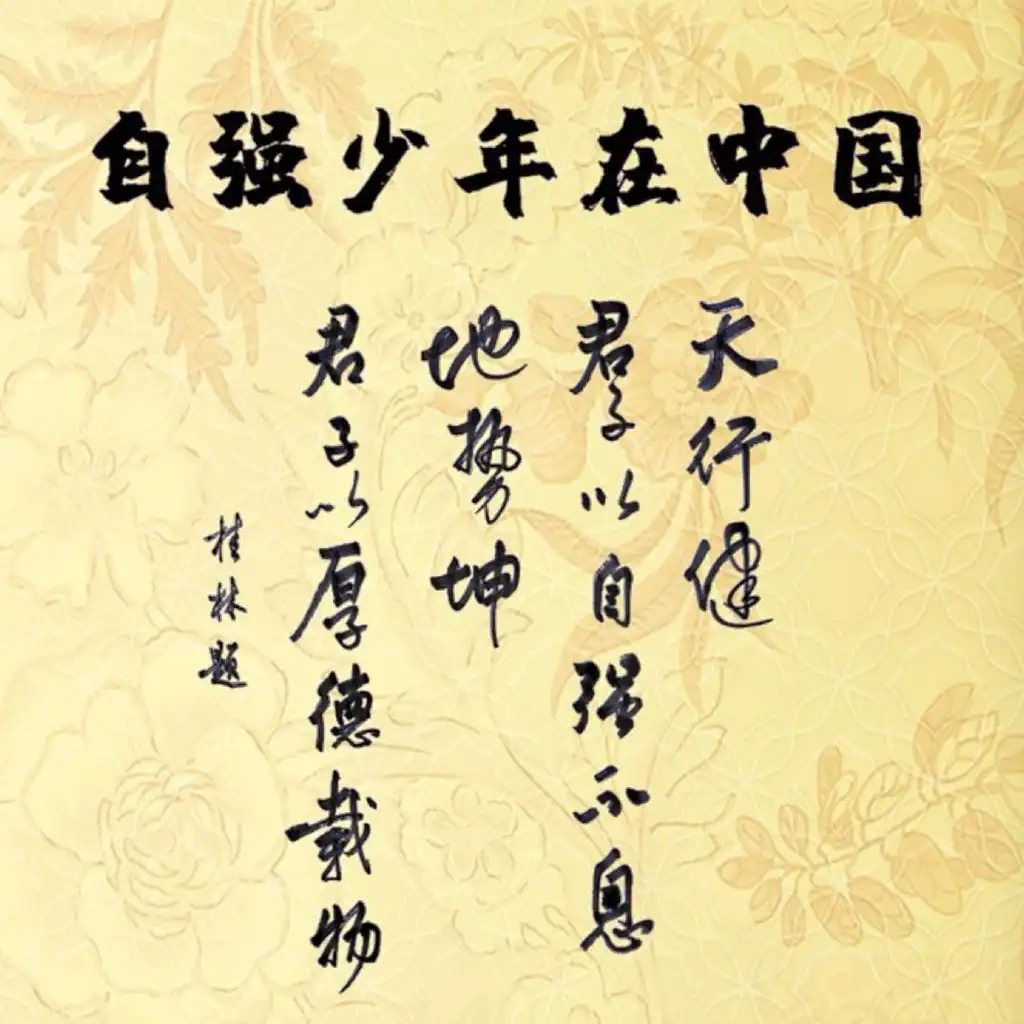 自强少年在中国
天行健
君子以自强不息
地势坤
君子以厚德载物
桂林题